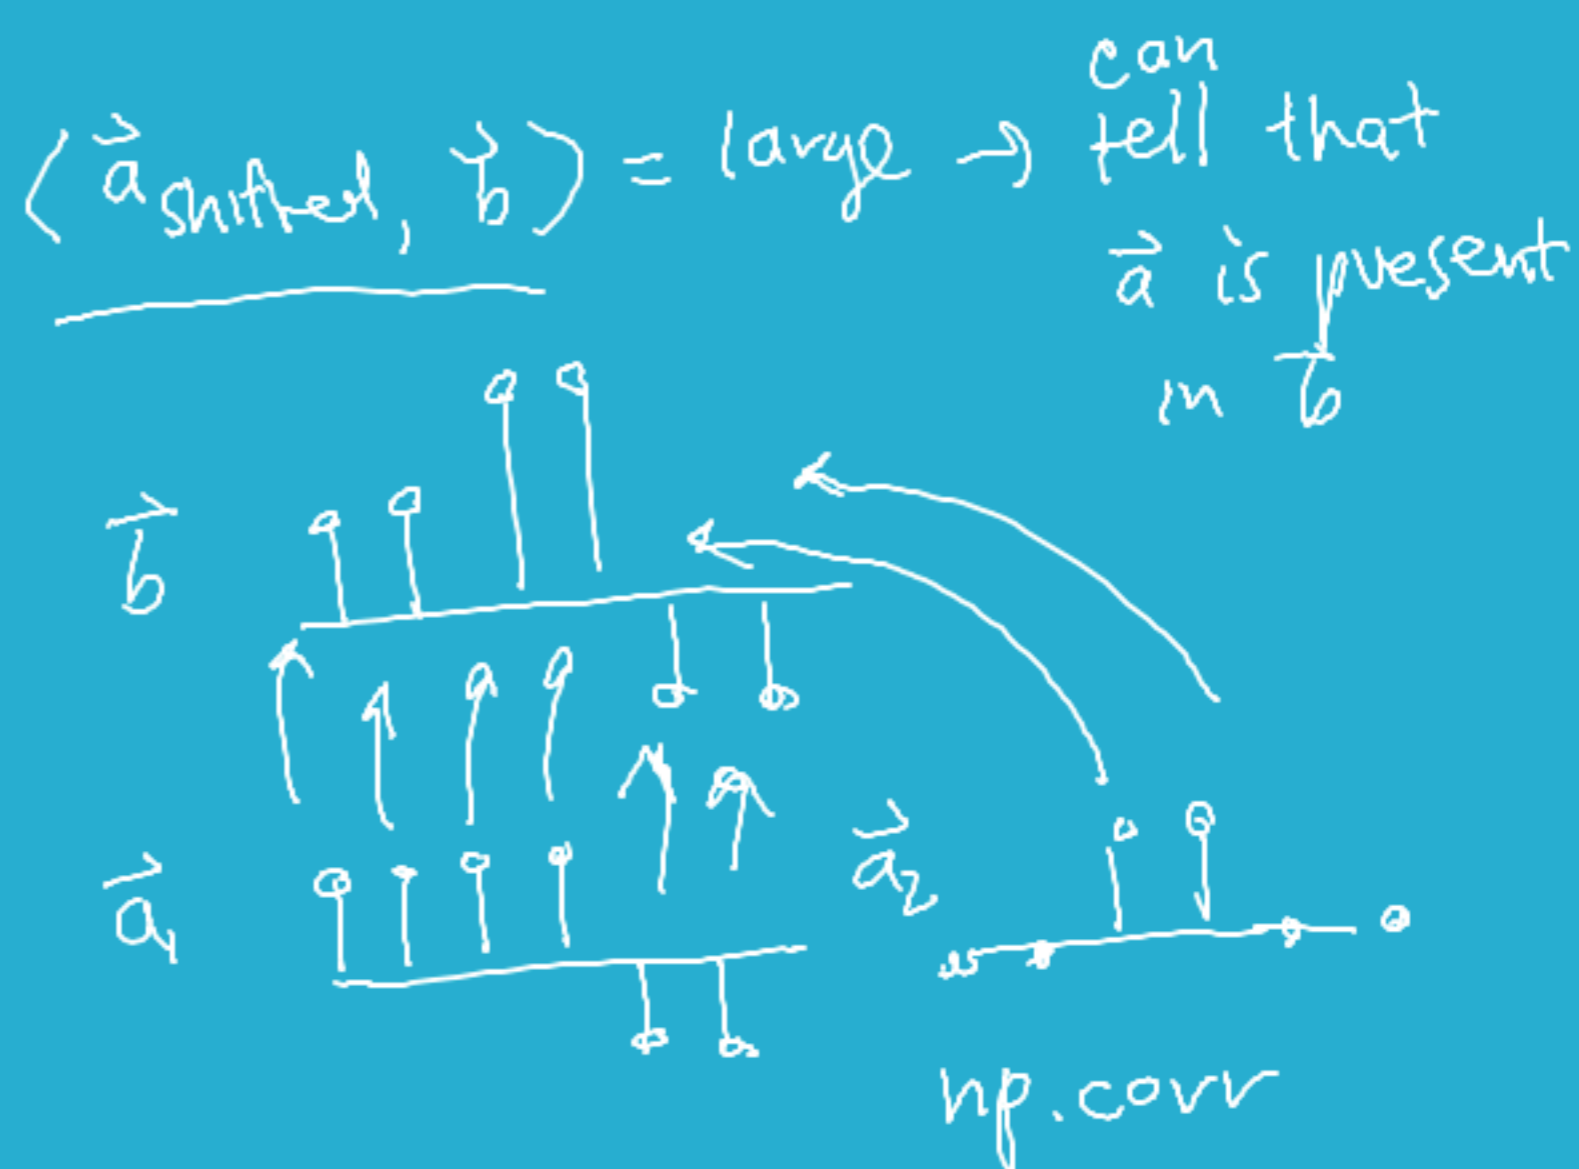 ⟨a⃗ shifted, b⃗⟩ = large → can tell that
a⃗ is present
in b⃗
b⃗
a⃗₁
a⃗₂
np.corr